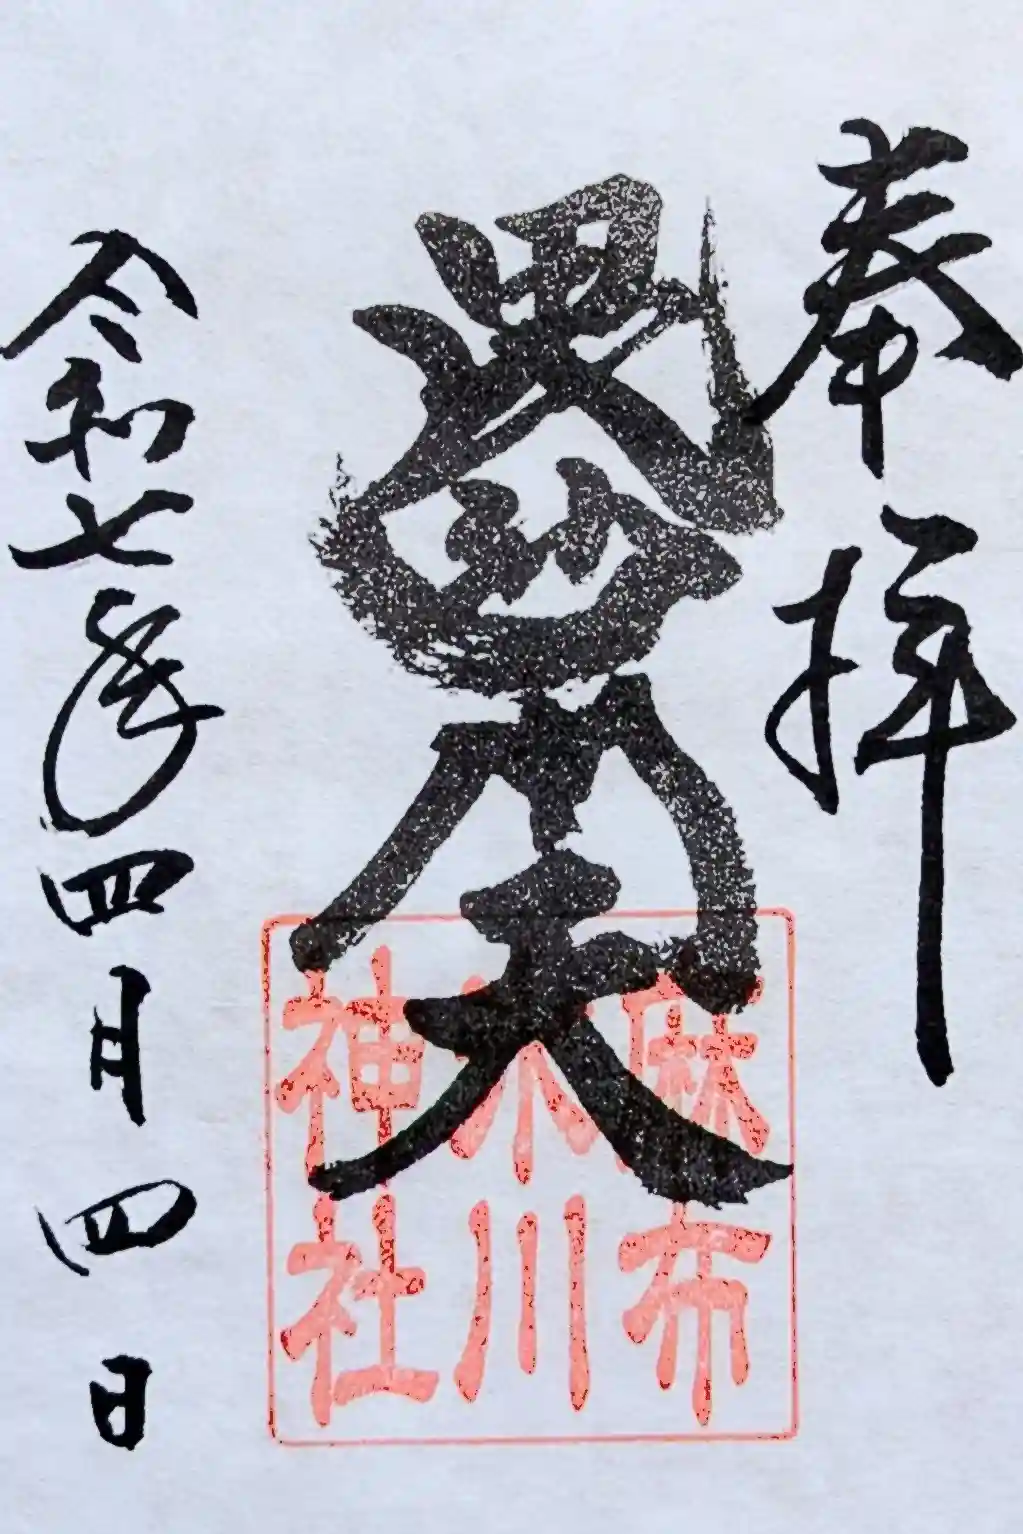 奉拝
毘沙門天
麻布
氷川
神社
令和七年四月四日